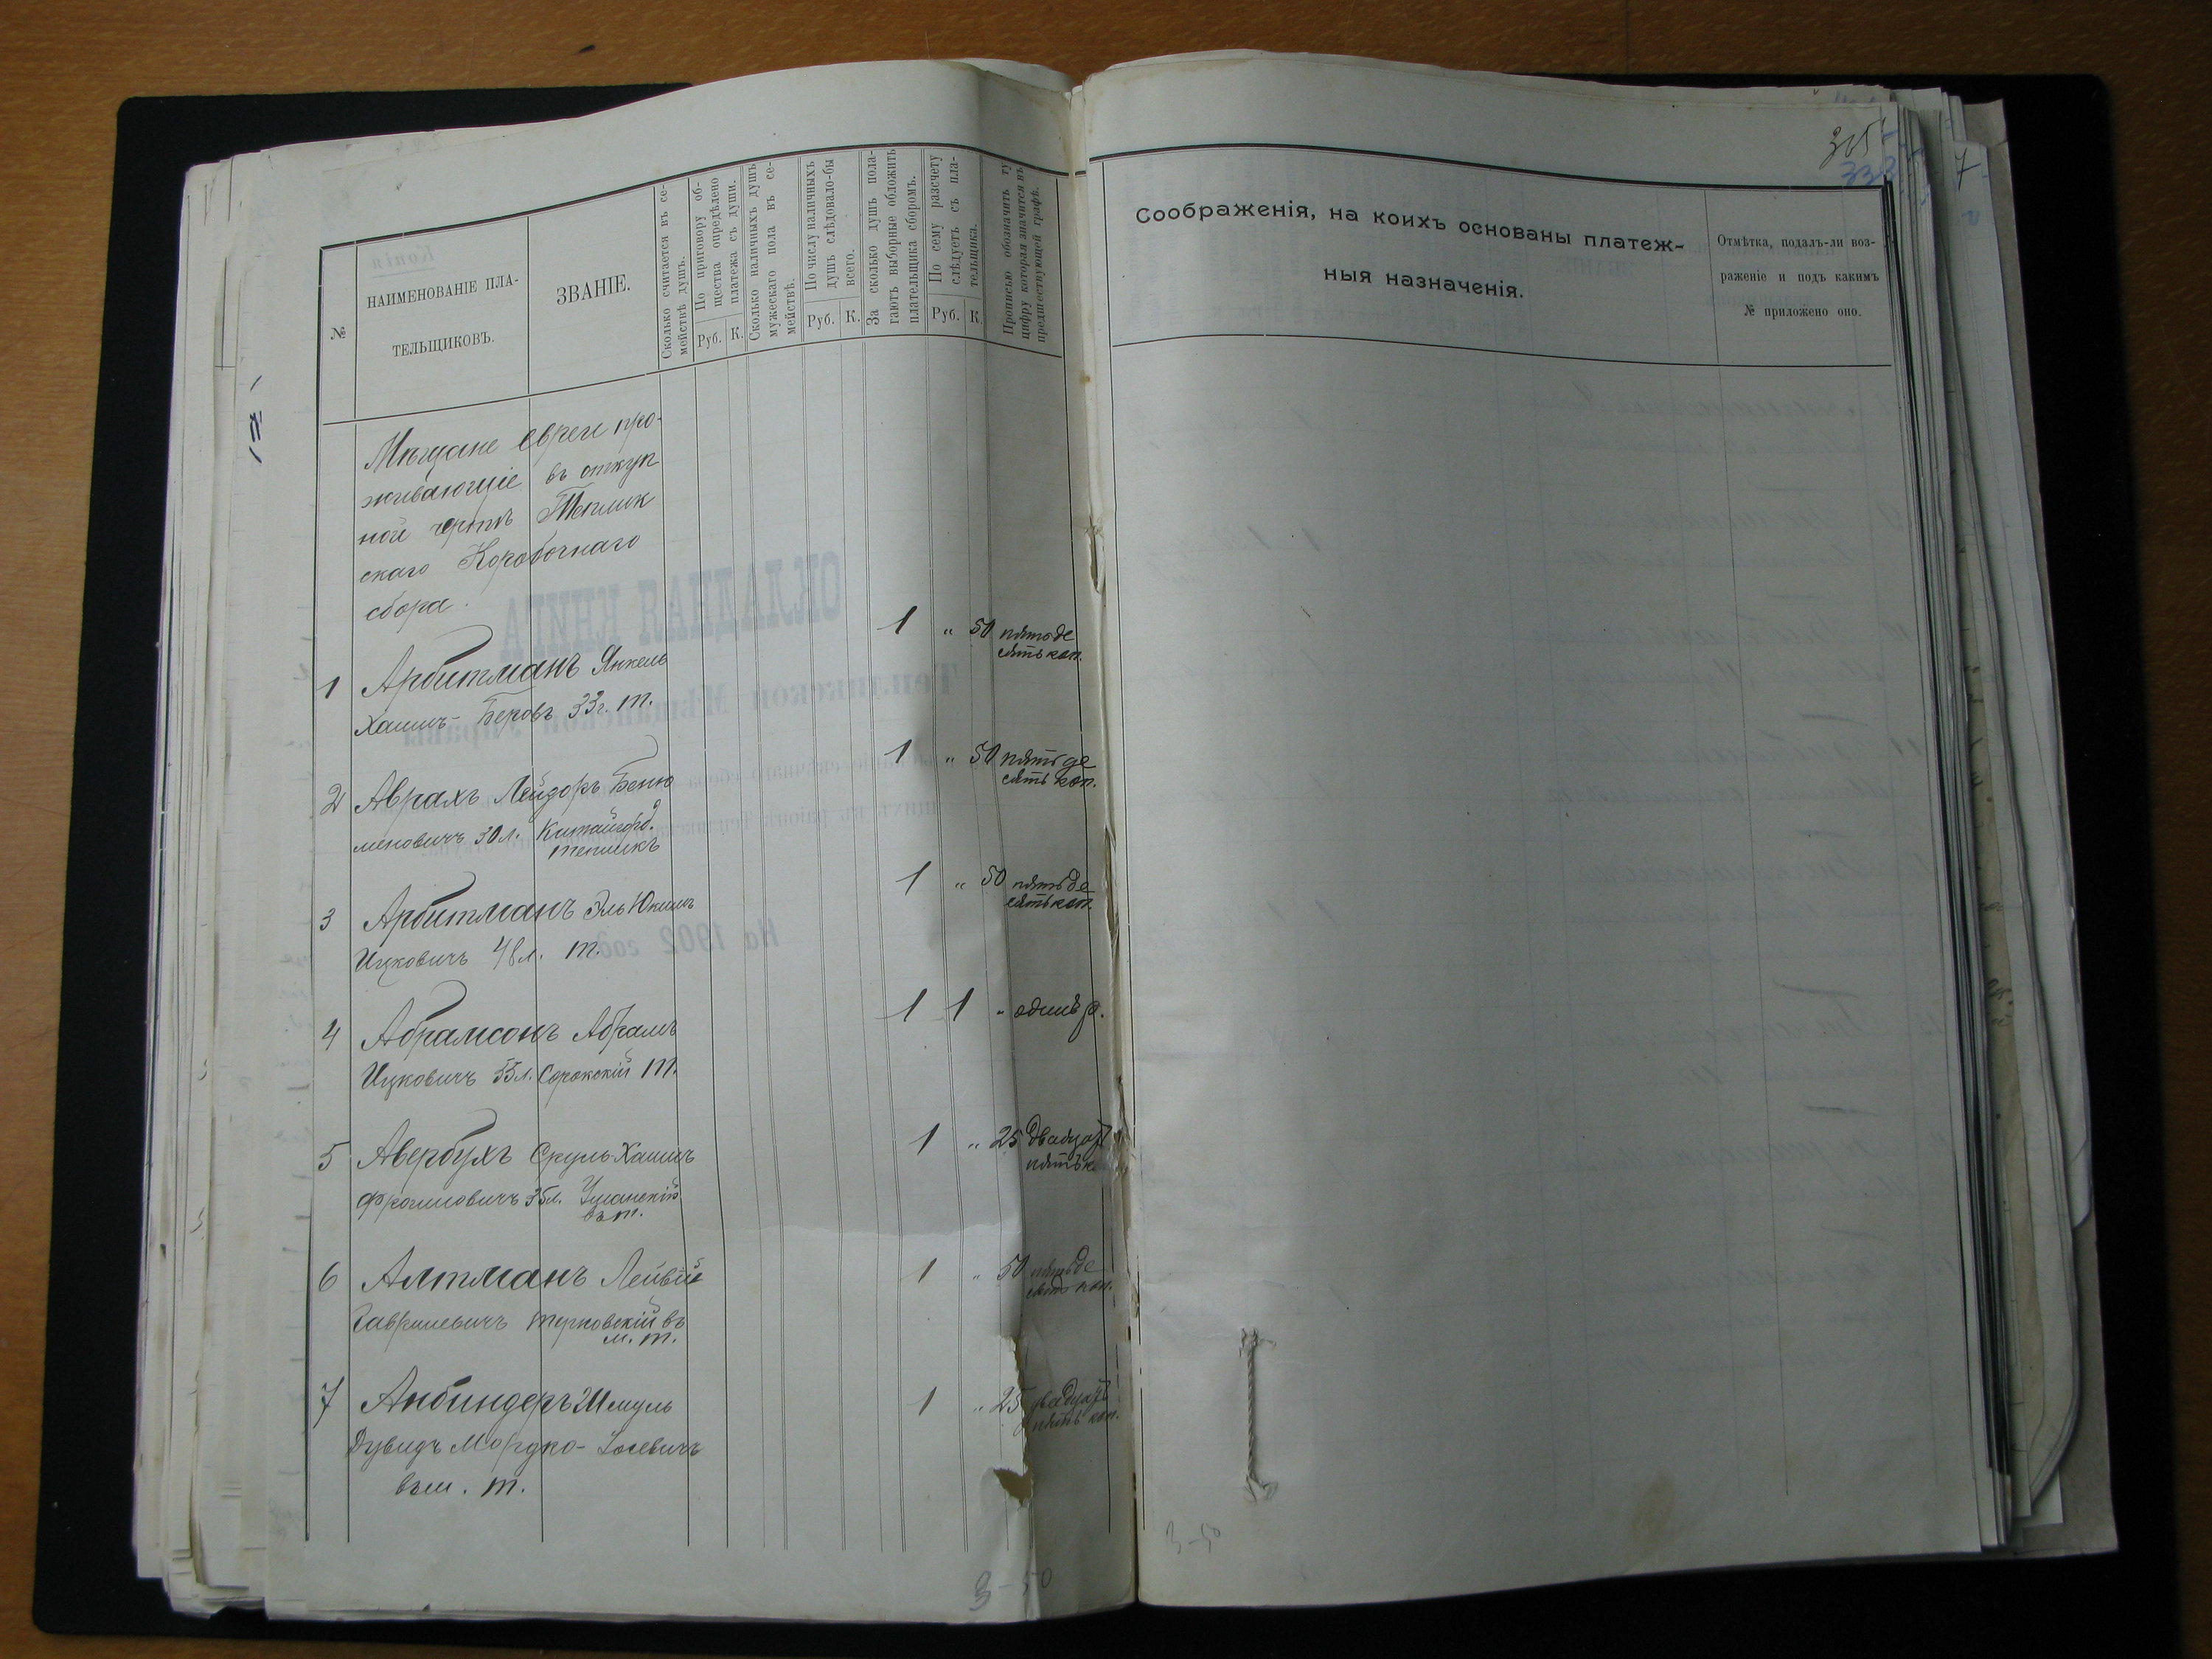 №
НАИМЕНОВАНІЕ ПЛА-
ТЕЛЬЩИКОВЪ.
ЗВАНІЕ.
Сколько считается въ се-
мействѣ душъ.
По приговору об-
щества опредѣлено
платежа съ души.
Руб. К.
Сколько наличныхъ душъ
мужескаго пола въ се-
мействѣ.
По числу наличныхъ
душъ слѣдовало-бы
всего.
Руб. К.
За сколько душъ пола-
гаютъ выборные обложить
плательщика сборомъ.
По сему разсчету
слѣдуетъ съ пла-
тельщика.
Руб. К.
Прописью обозначить ту
цифру которая значится въ
предшествующей графѣ.
Мѣщане евреи про-
живающіе въ откуп
ной чертѣ Теплик
скаго Коробочнаго
сбора.
1 Арбитманъ Янкель
Хаимъ-Беровъ 33г. т.
1 " 50 пятьде
сять коп.
2 Аврахъ Лейзоръ Беню
меновичъ 30 л. Китайгород.
тепликъ
1 " 50 пятьде
сять коп.
3 Арбитманъ Эль Юкимъ
Ицковичъ 48 л. т.
1 " 50 пятьде
сять коп.
4 Абрамсонъ Абрамъ
Ицковичъ 55 л. Сорокскій т.
1 1 " одинъ р.
5 Авербухъ Сруль-Хаимъ
Фроимовичъ 35 л. Уманскій
въ т.
1 " 25 двадцать
пять к.
6 Алтманъ Лейвій
Гаврилевичъ терновскій въ
м. т.
1 " 50 пятьде
сять коп.
7 Анбиндеръ Шмуль
Дувидъ Мордко-Іосевичъ
въ м. т.
1 " 25 двадцать
пять коп.
3-50
305
Соображенія, на коихъ основаны платеж-
ныя назначенія.
Отмѣтка, подалъ-ли воз-
раженіе и подъ какимъ
№ приложено оно.
3-50